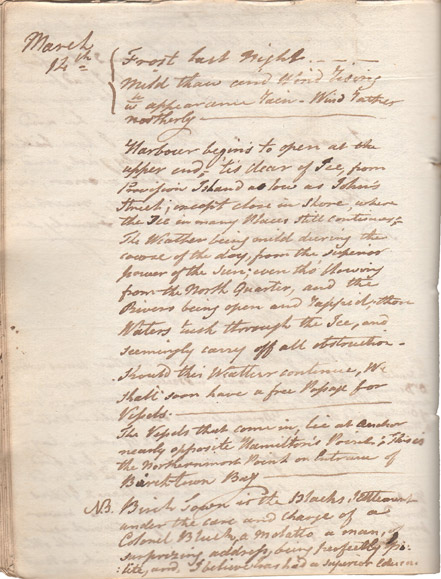 March
14th
Frost last Night. - - -
Mild thaw and Wind rising
wth appearance Rain - Wind rather
northerly -
Harbour begins to open at the
upper end, tis clear of Ice, from
Provision Island as low as John's
Street, except close in shore, where
the Ice in many Places still continues,
The Weather being mild during the
course of the day, from the superior
power of the Sun; even tho' blowing
from the North Quarter, and the
Rivers being open and
Waters rush through the Ice, and
seemingly carry off all obstruction -
Should this Weather continue, We
shall soon have a free Passage for
Vessels. -
The Vessels that come in, lie at anchor
nearly opposite Hamilton's Point; This is
the Northernmost Point on Entrance of
Birch town Bay
NB. Birch Town is the Blacks Settlement
under the care and charge of a
Colonel Bluck, a Molatto, a man, of
surprizing address, being perfectly po-
:lite, and, I believe has had a superior Educa: